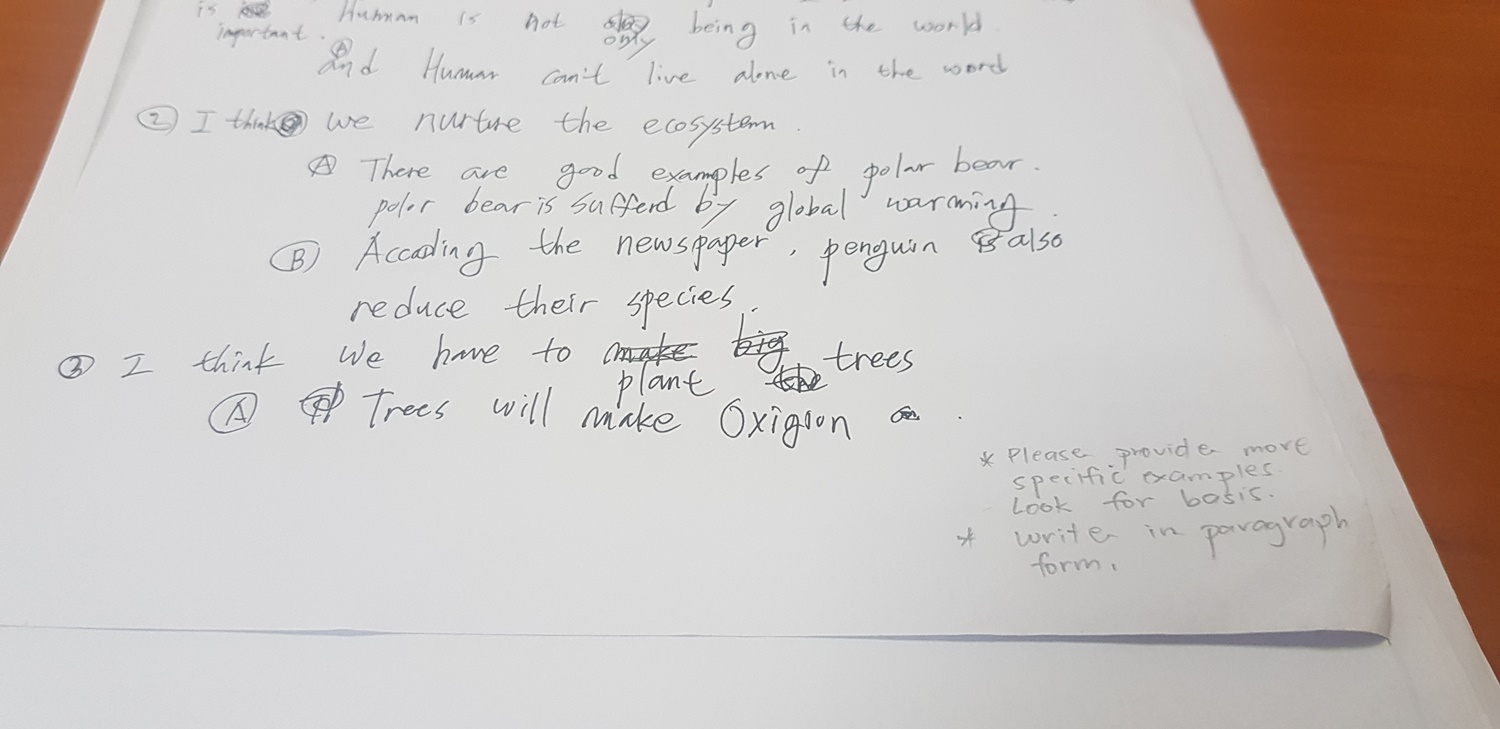 is Human is not being in the world.
important. only
Ⓐ
And Human can't live alone in the word
② I think we nurture the ecosystem.
Ⓐ There are good examples of polar bear.
polar bear is sufferd by global warming.
Ⓑ Accading the newspaper, penguin also
reduce their species.
③ I think we have to make big trees
plant the
Ⓐ Trees will make Oxigion.
* Please provide more
specific examples.
Look for basis.
* write in paragraph
form.